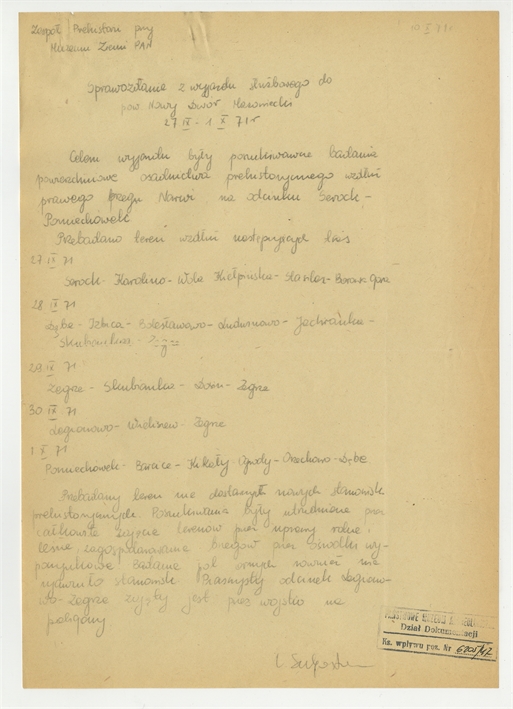 Zespół Prehistorii przy
Muzeum Ziemi PAN
Sprawozdanie z wyjazdu służbowego do
pow. Nowy Dwór Mazowiecki
27 IX - 1 X 71 r
Celem wyjazdu były poszukiwawcze badania
powierzchniowe osadnictwa prehistorycznego wzdłuż
prawego brzegu Narwi na odcinku Serock -
Pomiechówek
Przebadano teren wzdłuż następujących tras
27 IX 71
Serock - Karolino - Wola Kiełpińska - Stasilas - Borowa Góra
28 IX 71
Dębe - Izbica - Bolesławowo - Ludwinowo - Jachranka -
Skubianka -
29 IX 71
Zegrze - Skubianka - Dosin - Zegrze
30 IX 71
Legionowo - Wieliszew - Zegrze
1 X 71
Pomiechówek - Kikoły Ogrody - Orzechowo - Dębe
Przebadany teren nie dostarczył nowych stanowisk
prehistorycznych. Poszukiwania były utrudnione przez
całkowite zajęcie terenów przez uprawy rolne i
leśne, zagospodarowanie brzegów przez ośrodki wy-
poczynkowe. Badania pól ornych również nie
ujawniło stanowisk. odcinek Legiono-
wo - Zegrze zajęty jest przez wojsko na
poligony
Dział Dokumentacji
Ks. wpływu poz. Nr